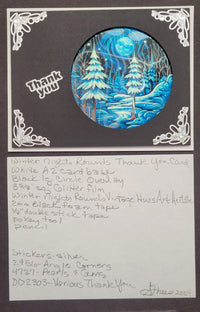 Thank
you!
Winter Nights Rounds Thank You Card
White A2 card base
Black Big Circle Overlay
Glitter Film
Winter Nights Rounds Vintage Hues Art ArtISte
2mm Black foam tape
1/8" double stick tape
Pokey tool
pencil
Stickers - silver
Angle Corners
4727 - Pearls & Gems
DD2303 - Various Thank You